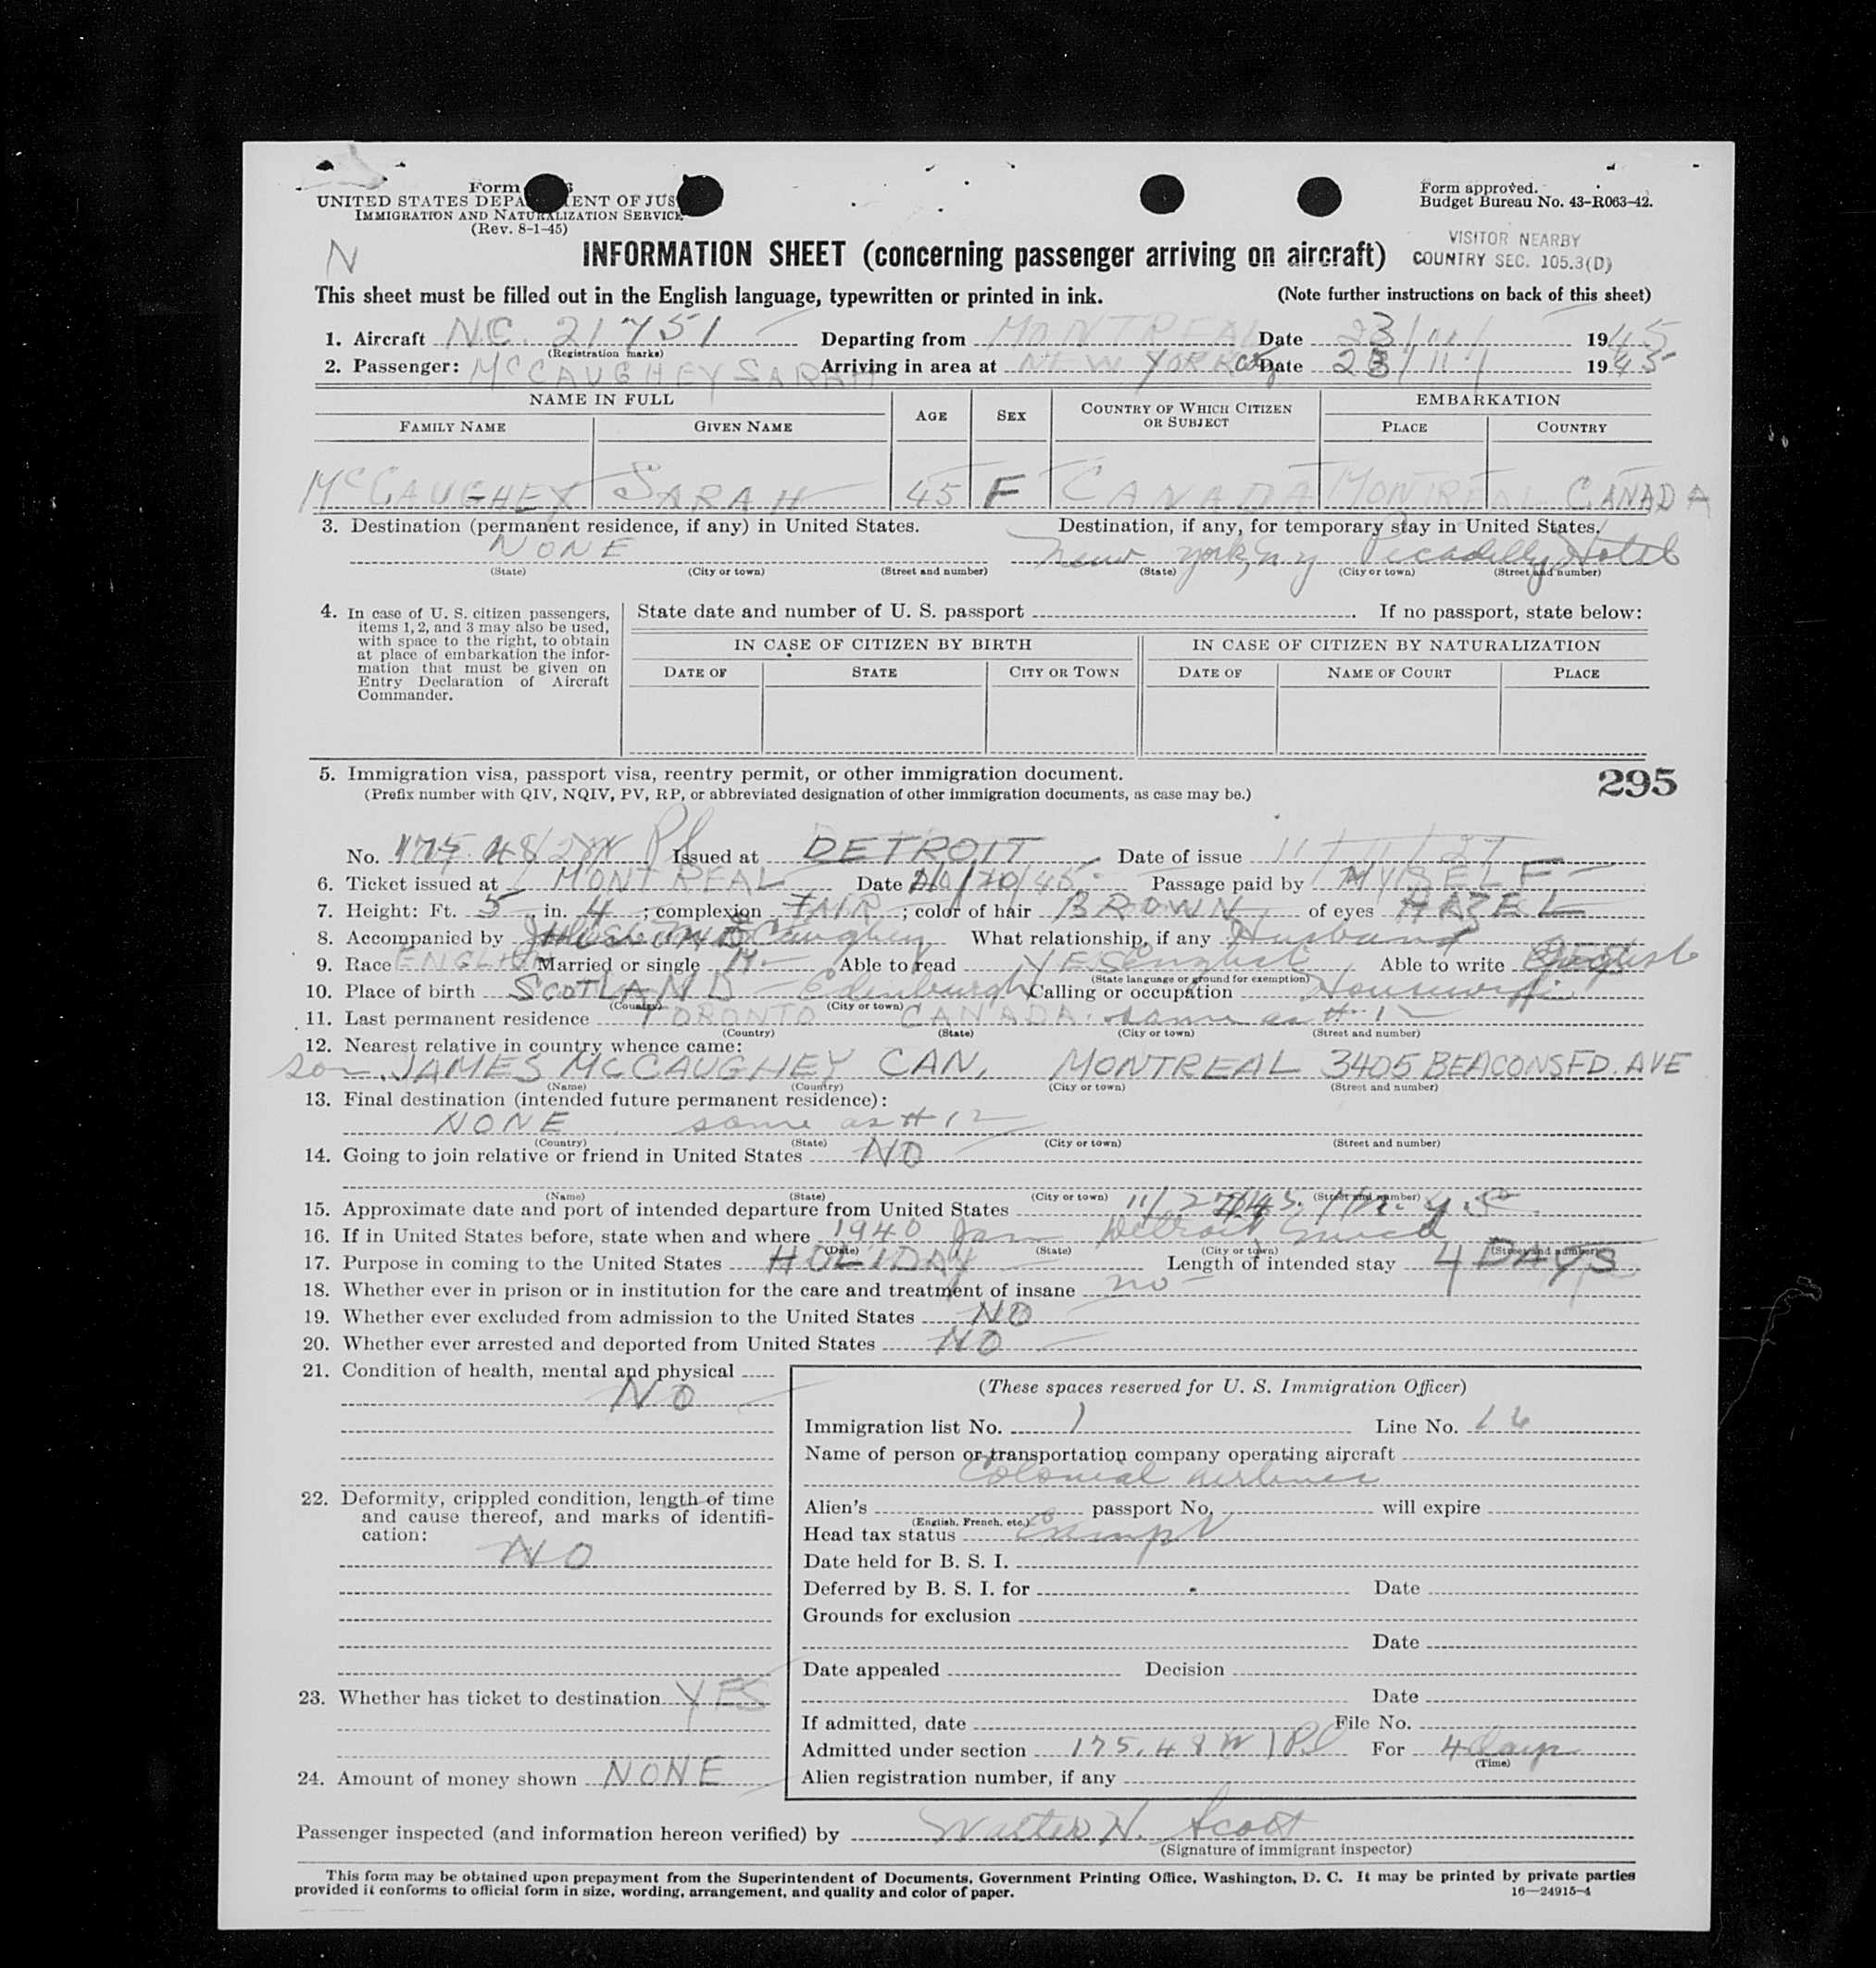 Form
UNITED STATES DEPA ENT OF JUS
IMMIGRATION AND NATURALIZATION SERVICE
(Rev. 8-1-45)
Form approved.
Budget Bureau No. 43-R063-42.
N
INFORMATION SHEET (concerning passenger arriving on aircraft)
VISITOR NEARBY
COUNTRY SEC. 105.3(D)
This sheet must be filled out in the English language, typewritten or printed in ink. (Note further instructions on back of this sheet)
1. Aircraft N.C. 21751 Departing from MONTREAL Date 23/11/ 1945
(Registration marks)
2. Passenger: MCCAUGHEY SARAH Arriving in area at NEW YORK City Date 23/11/ 1945
NAME IN FULL AGE SEX COUNTRY OF WHICH CITIZEN OR SUBJECT EMBARKATION
FAMILY NAME GIVEN NAME PLACE COUNTRY
MCCAUGHEY SARAH 45 F CANADA MONTREAL CANADA
3. Destination (permanent residence, if any) in United States. Destination, if any, for temporary stay in United States.
NONE New York, N Y Picadilly Hotel
(State) (City or town) (Street and number) (State) (City or town) (Street and number)
4. In case of U. S. citizen passengers, items 1, 2, and 3 may also be used, with space to the right, to obtain at place of embarkation the information that must be given on Entry Declaration of Aircraft Commander.
State date and number of U. S. passport If no passport, state below:
IN CASE OF CITIZEN BY BIRTH IN CASE OF CITIZEN BY NATURALIZATION
DATE OF STATE CITY OR TOWN DATE OF NAME OF COURT PLACE
5. Immigration visa, passport visa, reentry permit, or other immigration document.
295
(Prefix number with QIV, NQIV, PV, RP, or abbreviated designation of other immigration documents, as case may be.)
No. 175.48 Issued at DETROIT Date of issue
6. Ticket issued at MONTREAL Date /20/45 Passage paid by MYSELF
7. Height: Ft. 5 in. 4 ; complexion FAIR ; color of hair BROWN of eyes HAZEL
8. Accompanied by McCaughey What relationship, if any Husband
9. Race ENGLISH Married or single M. Able to read YES English Able to write English
(State language or ground for exemption)
10. Place of birth SCOTLAND - Edinburgh Calling or occupation Housewife
(Country) (City or town)
11. Last permanent residence TORONTO CANADA. same as # 12
(Country) (State) (City or town) (Street and number)
12. Nearest relative in country whence came:
son JAMES MCCAUGHEY CAN, MONTREAL 3405 BEACONSFD. AVE
(Name) (Country) (City or town) (Street and number)
13. Final destination (intended future permanent residence):
NONE same as # 12
(Country) (State) (City or town) (Street and number)
14. Going to join relative or friend in United States NO
(Name) (State) (City or town) (Street and number)
15. Approximate date and port of intended departure from United States 11/27/45. N. Y. C
16. If in United States before, state when and where 1940 Jan Detroit Mich
(Date) (State) (City or town) (Street and number)
17. Purpose in coming to the United States HOLIDAY Length of intended stay 4 DAYS
18. Whether ever in prison or in institution for the care and treatment of insane no
19. Whether ever excluded from admission to the United States NO
20. Whether ever arrested and deported from United States NO
21. Condition of health, mental and physical
NO
22. Deformity, crippled condition, length of time
and cause thereof, and marks of identification:
NO
23. Whether has ticket to destination YES
24. Amount of money shown NONE
(These spaces reserved for U. S. Immigration Officer)
Immigration list No. 1 Line No. 16
Name of person or transportation company operating aircraft
Colonial Airlines
Alien's passport No. will expire
(English, French, etc.)
Head tax status Exempt
Date held for B. S. I.
Deferred by B. S. I. for Date
Grounds for exclusion
Date
Date appealed Decision
Date
If admitted, date File No.
Admitted under section 175.48 For 4 Days
(Time)
Alien registration number, if any
Passenger inspected (and information hereon verified) by Walter H. Scott
(Signature of immigrant inspector)
This form may be obtained upon prepayment from the Superintendent of Documents, Government Printing Office, Washington, D. C. It may be printed by private parties
provided it conforms to official form in size, wording, arrangement, and quality and color of paper. 16—24915-4